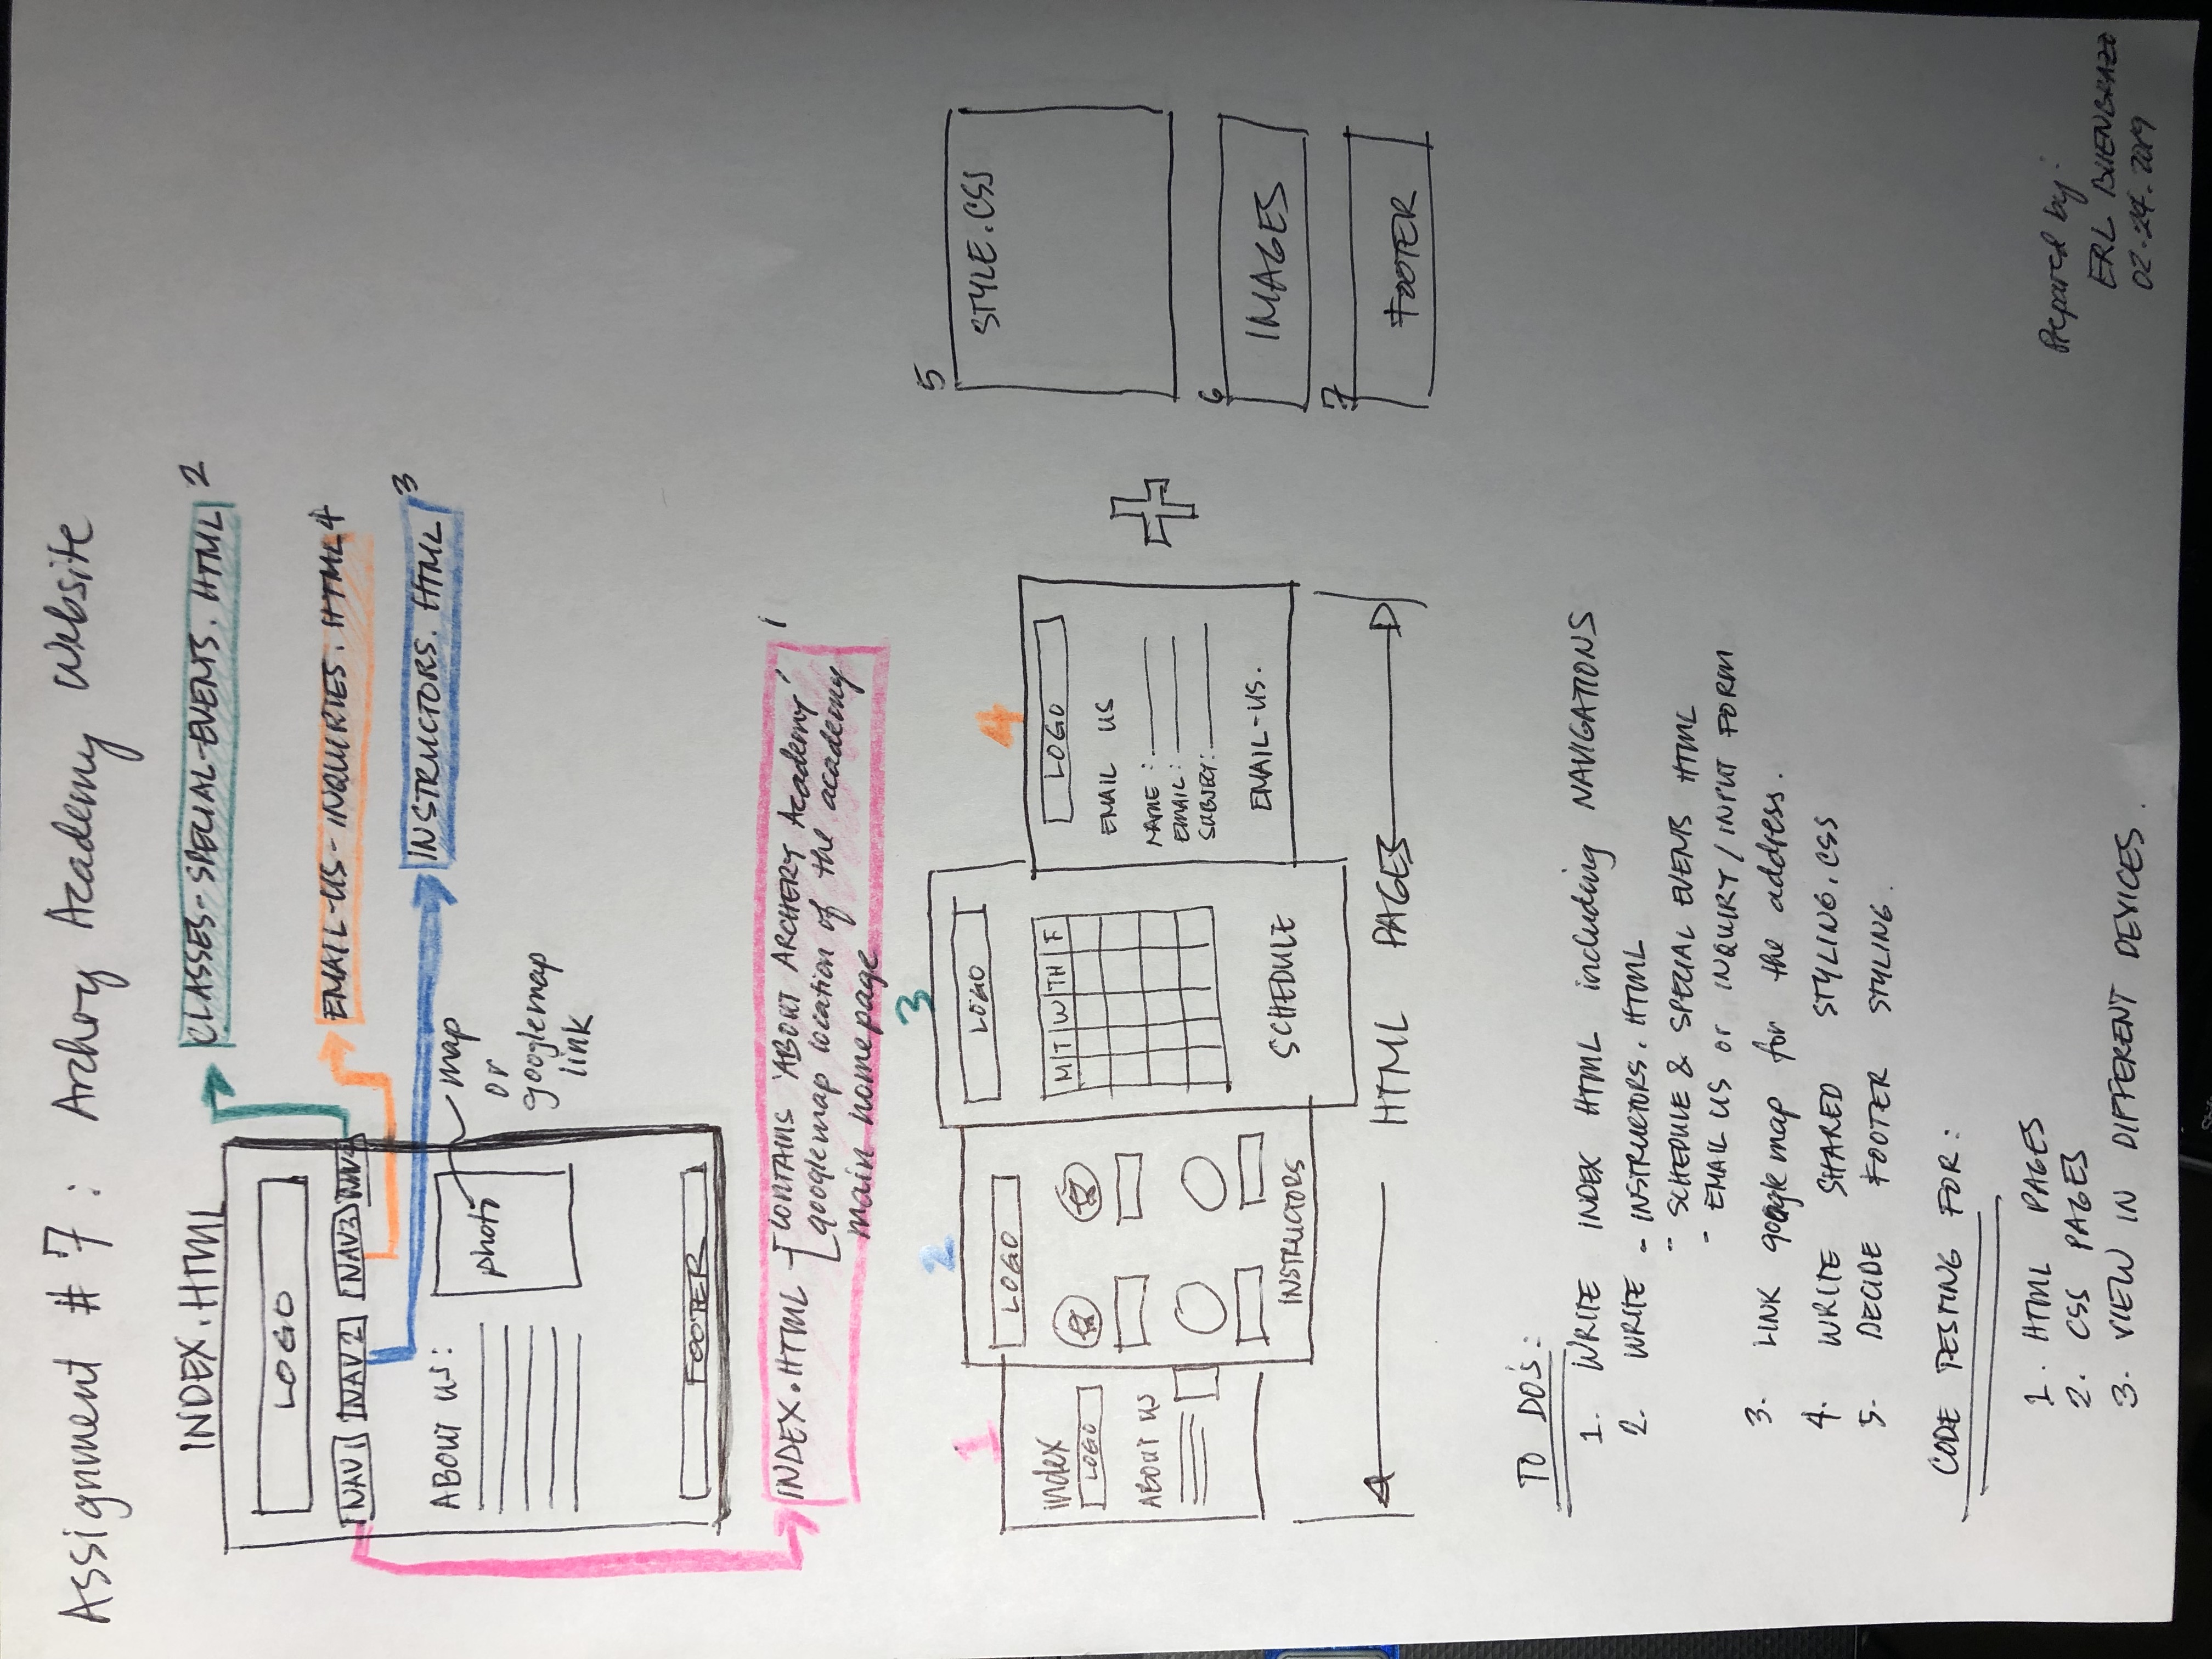 Assignment # 7 : Archery Academy Website
INDEX.HTML
LOGO
NAV 1 NAV 2 NAV3 NAV4
ABOUT US:
photo
map
or
googlemap
link
FOOTER
CLASSES-SPECIAL-EVENTS. HTML 2
EMAIL-US-INQUIRIES. HTML 4
INSTRUCTORS. HTML 3
INDEX.HTML - CONTAINS 'ABOUT ARCHERY Academy' 1
googlemap location of the academy
main homepage
1
index
LOGO
ABOUT US
2
LOGO
INSTRUCTORS
3
LOGO
M T W TH F
SCHEDULE
4
LOGO
EMAIL US
NAME :
EMAIL :
SUBJECT:
EMAIL-US.
HTML PAGES
5
STYLE.CSS
6
IMAGES
7
FOOTER
TO DO'S :
1. WRITE INDEX HTML including NAVIGATIONS
2. WRITE - INSTRUCTORS. HTML
- SCHEDULE & SPECIAL EVENTS HTML
- EMAIL US or INQUIRY / INPUT FORM
3. LINK google map for the address.
4. WRITE SHARED STYLING.CSS
5. DECIDE FOOTER STYLING.
CODE TESTING FOR :
1. HTML PAGES
2. CSS PAGES
3. VIEW IN DIFFERENT DEVICES.
Prepared by:
ERL
02.24.2019